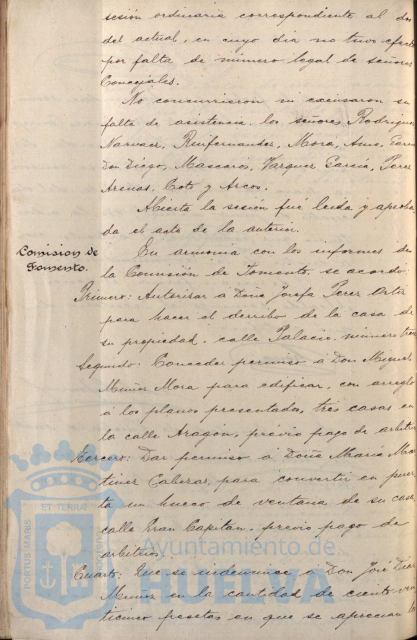 sesión ordinaria correspondiente al dos
del actual, en cuyo dia no tuvo efecto
por falta de número legal de señores
Concejales.
No concurrieron ni excusaron su
falta de asistencia los señores Rodriguez
Narvaez, Ruifernandez, Mora,
Don Diego, Mascarós, Vazquez Garcia, Perez
Arenas, Coto y Arcos.
Abierta la sesión fué leida y aproba
da el acta de la anterior.
Comision de
Fomento.
En armonia con los informes de
la Comisión de Fomento, se acordó:
Primero: Autorizar á Doña Josefa Perez Ortiz
para hacer el derribo de la casa de
su propiedad, calle Palacio, número tres
Segundo: Conceder permiso á Don Miguel
Muñoz Mora para edificar, con arreglo
á los planos presentados, tres casas en
la calle Aragón, previo pago de arbitrios
Tercero: Dar permiso á Doña Maria Mar
tinez Cabezas, para convertir en puer
ta un hueco de ventana de su casa
calle Gran Capitan, previo pago de
arbitrios.
Cuarto: Que se indemnice á Don José Diaz
Muñoz en la cantidad de ciento vein
ticinco pesetas en que se aprecian
PORTUS MARIS
ET TERRAE
CUSTODIA
Ayuntamiento de
HUELVA